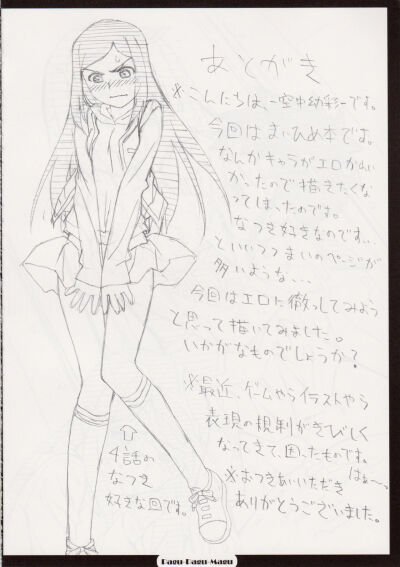 あとがき
※こんにちは、空中幼彩です。
今回はまいひめ本です。
なんかキャラがエロかわい
かったので描きたくな
ってしまったのです。
なつき好きなのです...
といいつつまいのページが
多いような...
今回はエロに徹ってみよう
と思って描いてみました。
いかがなものでしょうか?
※最近、ゲームやらイラストやら
表現の規制がきびしく
なってきて、困ったものです。
はぁ〜。
※おつきあいいただき
ありがとうございました。
⇧
4話の
なつき
好きな回です。
Pagu-Pagu-Magu